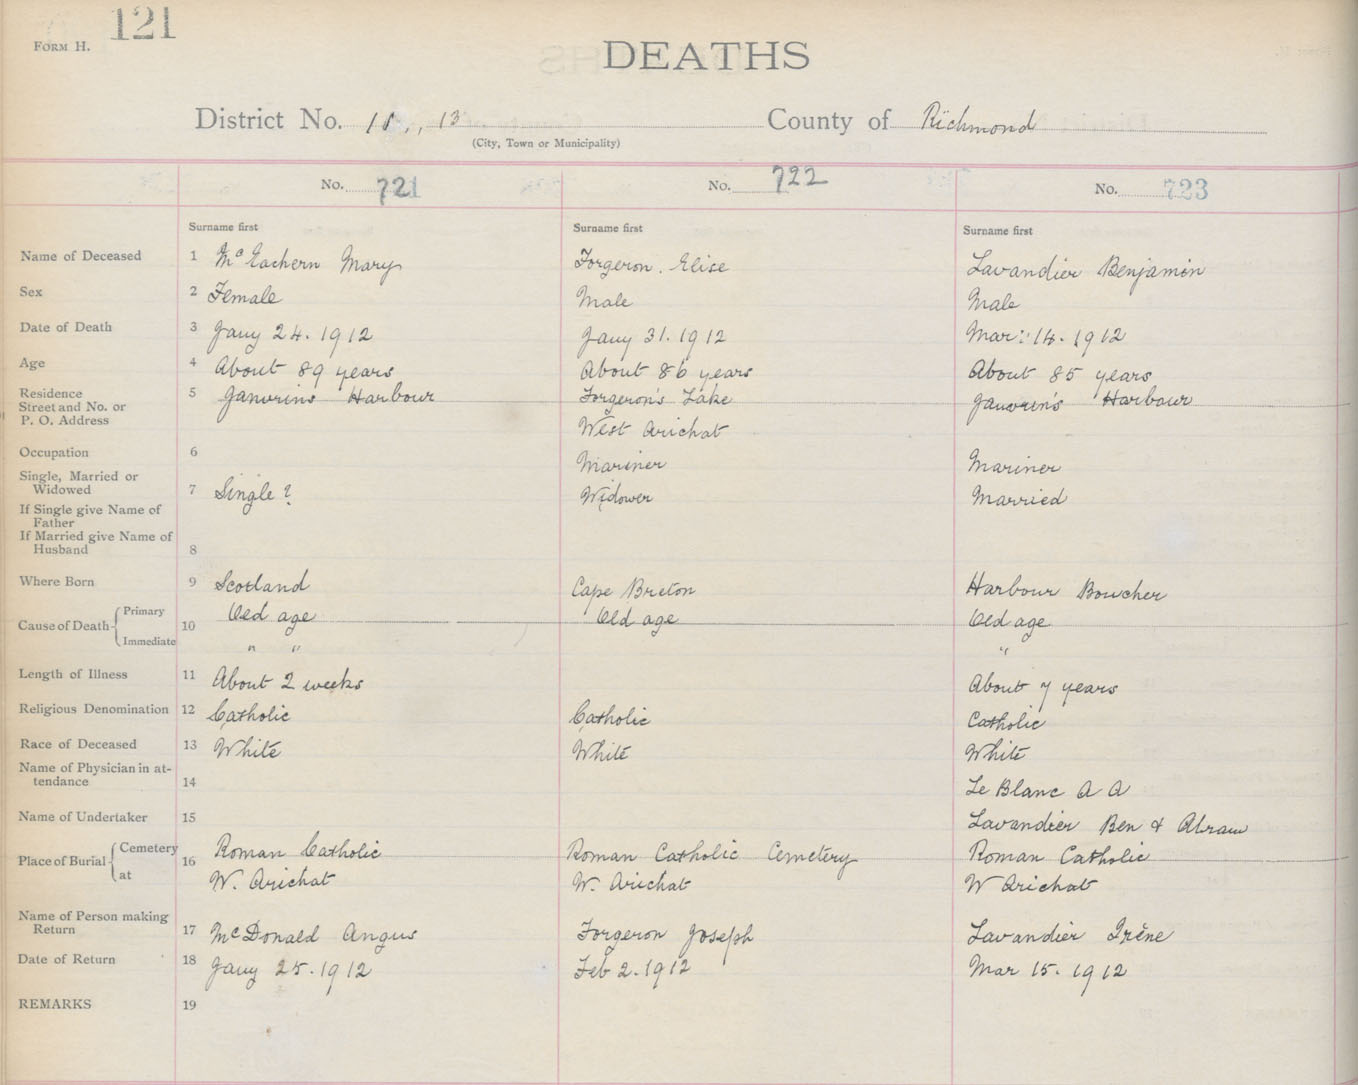 FORM H. 121
DEATHS
District No. 11,, 13 County of Richmond
(City, Town or Municipality)
No. 721 No. 722 No. 723
Surname first Surname first Surname first
Name of Deceased 1 McEachern Mary Forgeron. Elise Lavandier Benjamin
Sex 2 Female Male Male
Date of Death 3 Jany 24. 1912 Jany 31. 1912 Mar: 14. 1912
Age 4 About 89 years About 86 years About 85 years
Residence 5 Janvrin's Harbour Forgeron's Lake Janvrin's Harbour
Street and No. or
P. O. Address West Arichat
Occupation 6 Mariner Mariner
Single, Married or
Widowed 7 Single? Widower Married
If Single give Name of
Father
If Married give Name of
Husband 8
Where Born 9 Scotland Cape Breton Harbour Boucher
Cause of Death Primary 10 Old age Old age Old age
Immediate " " "
Length of Illness 11 About 2 weeks About 7 years
Religious Denomination 12 Catholic Catholic Catholic
Race of Deceased 13 White White White
Name of Physician in at-
tendance 14 Le Blanc A A
Name of Undertaker 15 Lavandier Ben & Abram
Place of Burial Cemetery 16 Roman Catholic Roman Catholic Cemetery Roman Catholic
at W. Arichat W. Arichat W Arichat
Name of Person making
Return 17 McDonald Angus Forgeron Joseph Lavandier Irène
Date of Return 18 Jany 25. 1912 Feb 2. 1912 Mar 15. 1912
REMARKS 19